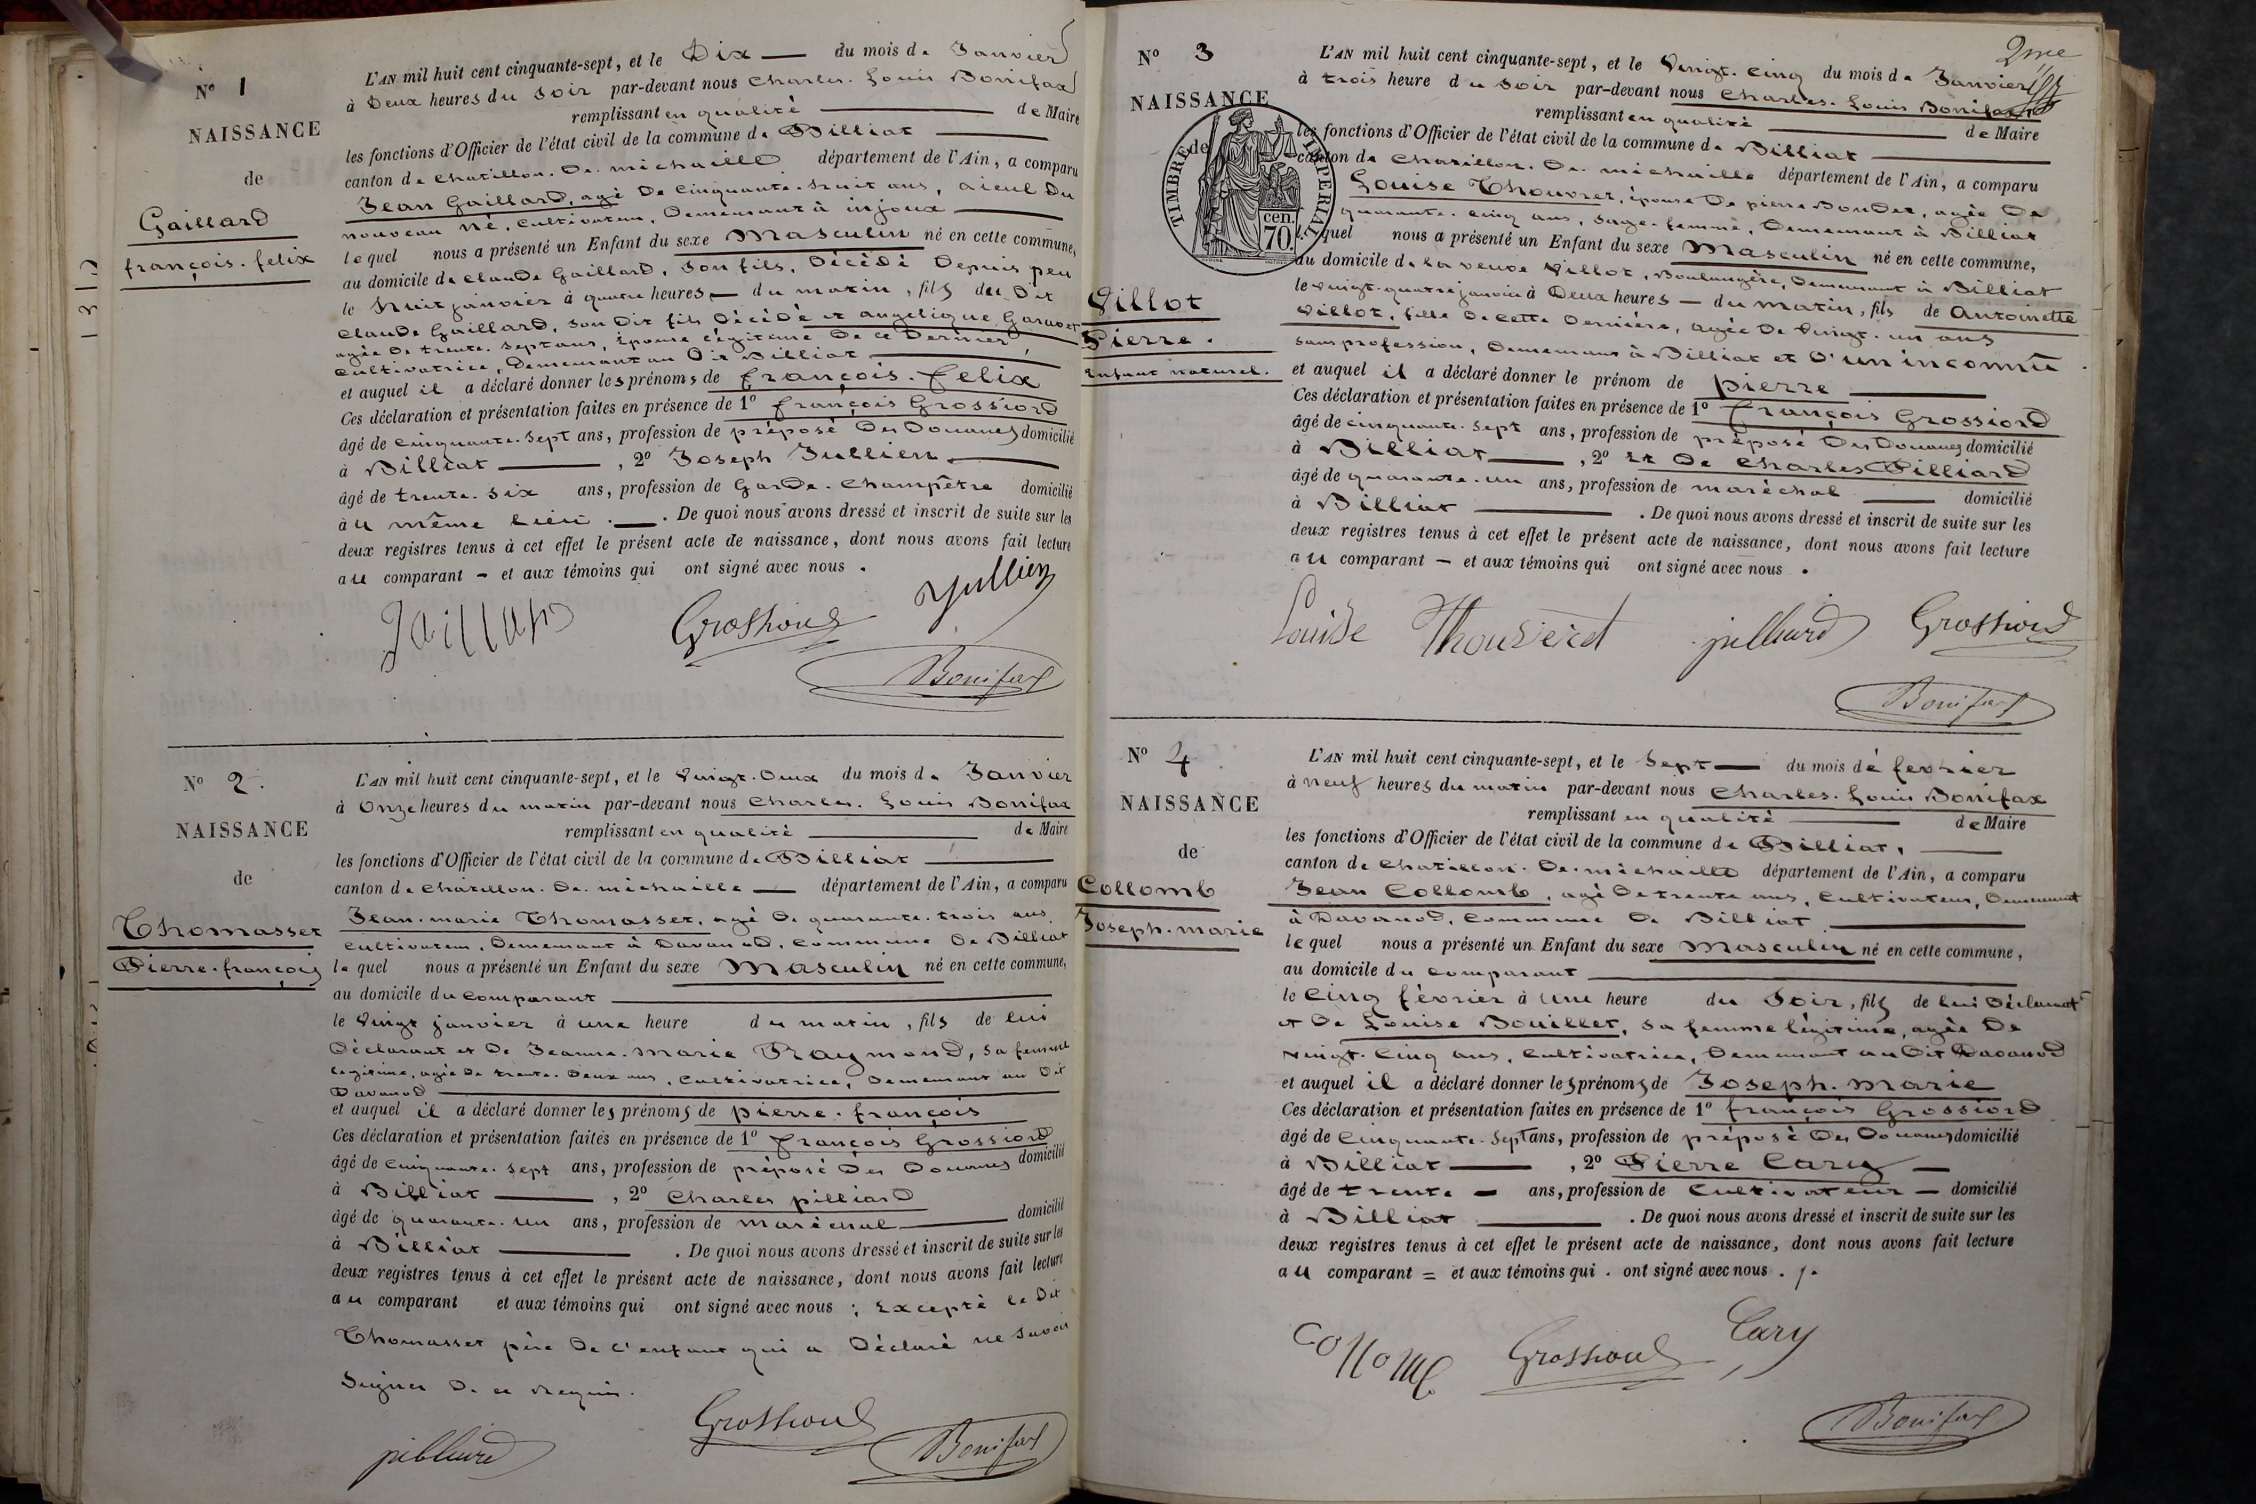 Nº 1
NAISSANCE
de
Gaillard
françois. felix
L'AN mil huit cent cinquante-sept, et le Dix du mois de Janvier
à Deux heures du soir par-devant nous Charles. Louis Bonifax
remplissant en qualité de Maire
les fonctions d'Officier de l'état civil de la commune de Billiat
canton de Chatillon. De. michaille département de l'Ain, a comparu
Jean Gaillard, agé De Cinquante. huit ans, aieul Du
nouveau né, Cultivateur, Demeurant à injoux
lequel nous a présenté un Enfant du sexe Masculin né en cette commune,
au domicile de Claude Gaillard, son fils, Décédé Depuis peu
le huit janvier à quatre heures du matin, fils du Dit
Claude Gaillard, son Dit fils Décédé et angelique
agée De trente. Sept ans, épouse légitime De ce Dernier,
Cultivatrice, Demeurant au Dit Billiat
et auquel il a déclaré donner les prénoms de françois. felix
Ces déclaration et présentation faites en présence de 1º françois Grossiord
âgé de Cinquante. Sept ans, profession de préposé Des Douanes domicilié
à Billiat, 2º Joseph Jullien
âgé de trente. six ans, profession de Garde. Champêtre domicilié
au même lieu. De quoi nous avons dressé et inscrit de suite sur les
deux registres tenus à cet effet le présent acte de naissance, dont nous avons fait lecture
au comparant - et aux témoins qui ont signé avec nous.
Gaillard
Grossiord
Jullien
Bonifax
Nº 2.
NAISSANCE
de
Thomasset
Pierre. françois
L'AN mil huit cent cinquante-sept, et le Vingt. Deux du mois de Janvier
à Onze heures du matin par-devant nous Charles. Louis Bonifax
remplissant en qualité de Maire
les fonctions d'Officier de l'état civil de la commune de Billiat
canton de Chatillon. De. michaille département de l'Ain, a comparu
Jean. marie Thomasset, agé De quarante. trois ans
Cultivateur, Demeurant à Davanod, Commune De Billiat
lequel nous a présenté un Enfant du sexe Masculin né en cette commune,
au domicile du Comparant
le Vingt janvier à une heure du matin, fils de lui
Déclarant et De Jeanne. Marie Raymond, sa femme
légitime, agée De trente. Deux ans, Cultivatrice, Demeurant au Dit
Davanod
et auquel il a déclaré donner les prénoms de pierre. françois
Ces déclaration et présentation faites en présence de 1º françois Grossiord
âgé de Cinquante. sept ans, profession de préposé Des Douanes domicilié
à Billiat, 2º Charles pilliard
âgé de quarante. un ans, profession de maréchal domicilié
à Billiat. De quoi nous avons dressé et inscrit de suite sur les
deux registres tenus à cet effet le présent acte de naissance, dont nous avons fait lecture
au comparant et aux témoins qui ont signé avec nous; Excepté le Dit
Thomasset père De l'enfant qui a Déclaré ne savoir
Signer De ce requis.
pilliard
Grossiord
Bonifax
2me
Nº 3
NAISSANCE
de
TIMBRE IMPERIAL
70 cen.
Villot
Pierre.
Enfant naturel.
L'AN mil huit cent cinquante-sept, et le Vingt. Cinq du mois de Janvier
à trois heure du soir par-devant nous Charles. Louis Bonifax
remplissant en qualité de Maire
les fonctions d'Officier de l'état civil de la commune de Billiat
canton de Chatillon. De. michaille département de l'Ain, a comparu
Louise Thouvret, épouse De pierre Bondet, agée De
quarante. Cinq ans, Sage. femme, Demeurant à Billiat
lequel nous a présenté un Enfant du sexe Masculin né en cette commune,
au domicile de la veuve Villot, Boulangère, Demeurant à Billiat
le Vingt. quatre janvier à Deux heures du matin, fils de Antoinette
Villot, fille De Cette Dernière, agée De Vingt. un ans
sans profession, Demeurant à Billiat et D'un inconnu
et auquel il a déclaré donner le prénom de pierre
Ces déclaration et présentation faites en présence de 1º françois Grossiord
âgé de cinquante. sept ans, profession de préposé Des Douanes domicilié
à Billiat, 2º Et De Charles Pilliard
âgé de quarante. un ans, profession de maréchal domicilié
à Billiat. De quoi nous avons dressé et inscrit de suite sur les
deux registres tenus à cet effet le présent acte de naissance, dont nous avons fait lecture
au comparant - et aux témoins qui ont signé avec nous.
Louise Thouveret
pilliard
Grossiord
Bonifax
Nº 4
NAISSANCE
de
Collomb
Joseph. marie
L'AN mil huit cent cinquante-sept, et le Sept du mois de fevrier
à neuf heures du matin par-devant nous Charles. Louis Bonifax
remplissant en qualité de Maire
les fonctions d'Officier de l'état civil de la commune de Billiat,
canton de Chatillon. De. michaille département de l'Ain, a comparu
Jean Collomb, agé De trente ans, Cultivateur, Demeurant
à Davanod, Commune De Billiat
lequel nous a présenté un Enfant du sexe Masculin né en cette commune,
au domicile du Comparant
le Cinq février à Une heure du Soir, fils de lui Déclarant
et De Louise Bouillet, sa femme légitime, agée De
Vingt. Cinq ans, Cultivatrice, Demeurant au Dit Davanod
et auquel il a déclaré donner les prénoms de Joseph. marie
Ces déclaration et présentation faites en présence de 1º françois Grossiord
âgé de Cinquante. Sept ans, profession de préposé Des Douanes domicilié
à Billiat, 2º Pierre Cary
âgé de trente - ans, profession de Cultivateur - domicilié
à Billiat. De quoi nous avons dressé et inscrit de suite sur les
deux registres tenus à cet effet le présent acte de naissance, dont nous avons fait lecture
au comparant = et aux témoins qui. ont signé avec nous.
Collomb
Grossiord
Cary
Bonifax